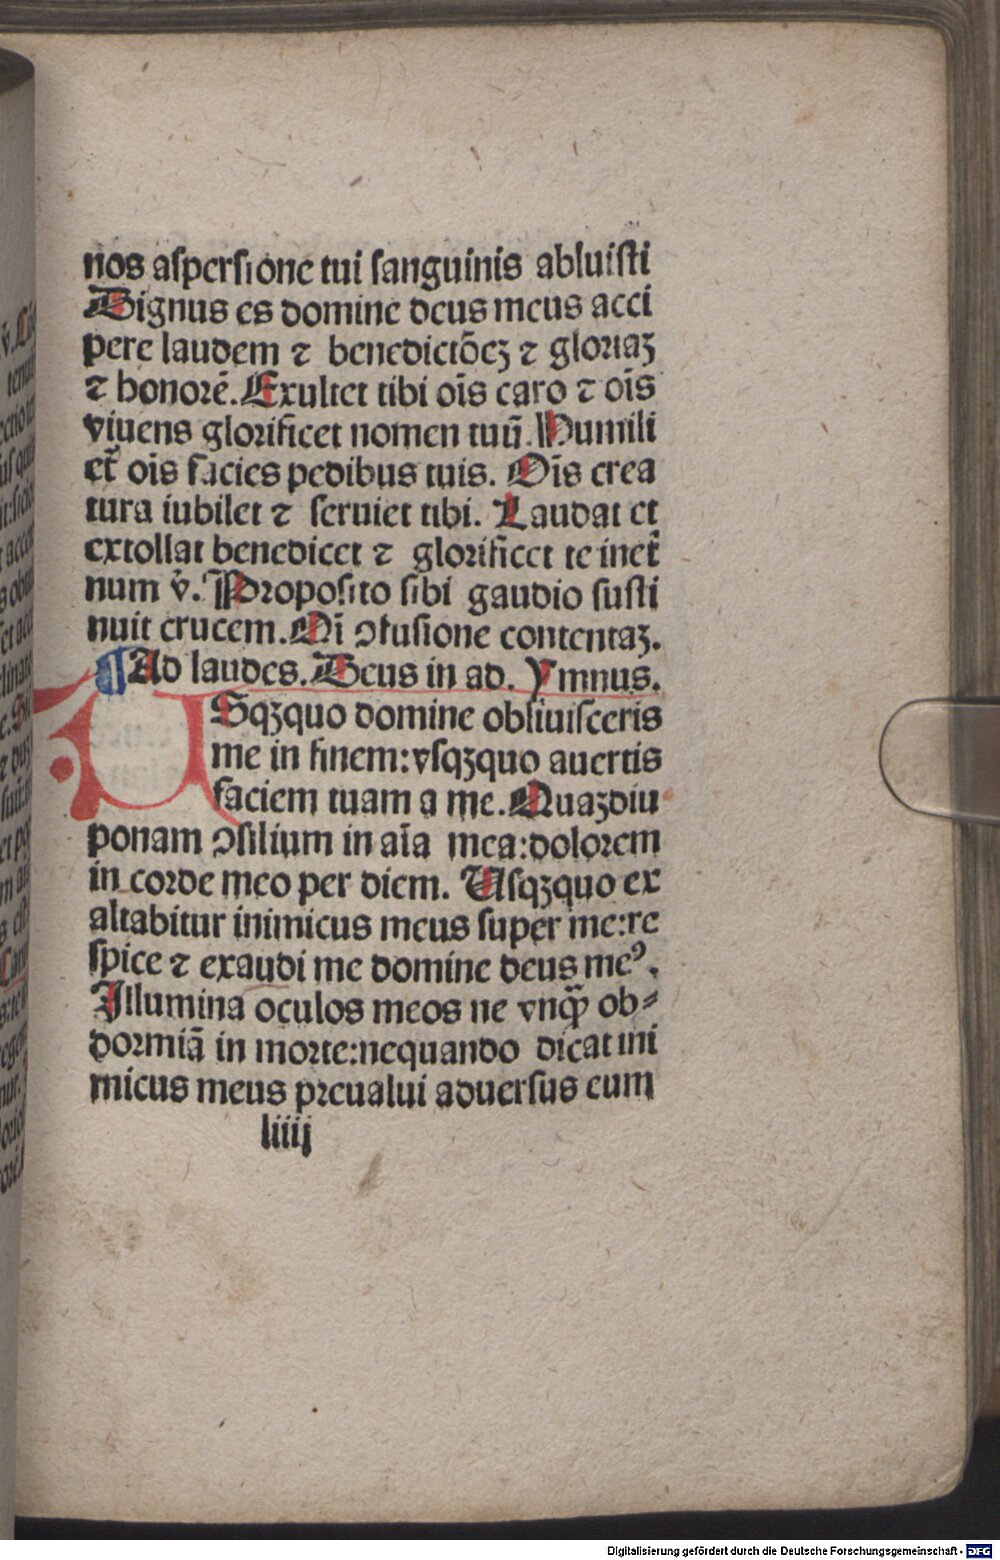 nos aſperſione tui ſanguinis abluiſti
Dignus es domine deus meus acci
pere laudem ⁊ benedictōeꝫ ⁊ gloriaꝫ
⁊ honorē. Exultet tibi oīs caro ⁊ oīs
viuens glorificet nomen tuū. Humili
et̄ oīs facies pedibus tuis. Oīs crea
tura iubilet ⁊ ſeruiet tibi. Laudat et
extollat benedicet ⁊ glorificet te inet̄
num v̄. Propoſito ſibi gaudio ſuſti
nuit crucem. Rī ꝯfuſione contentaꝫ.
¶ Ad laudes. Deus in ad. Ymnus.
USqꝫquo domine obliuiſceris
me in finem: vſqꝫquo auertis
faciem tuam a me. Quaꝫdiu
ponam ꝯſilium in aīa mea: dolorem
in corde meo per diem. Uſqꝫquo ex
altabitur inimicus meus ſuper me: re
ſpice ⁊ exaudi me domine deus meꝰ.
Illumina oculos meos ne vnqꝫ̄ ob⸗
dormiā in morte: nequando dicat ini
micus meus preualui aduerſus eum
liiij
Digitalisierung gefördert durch die Deutsche Forschungsgemeinschaft - DFG